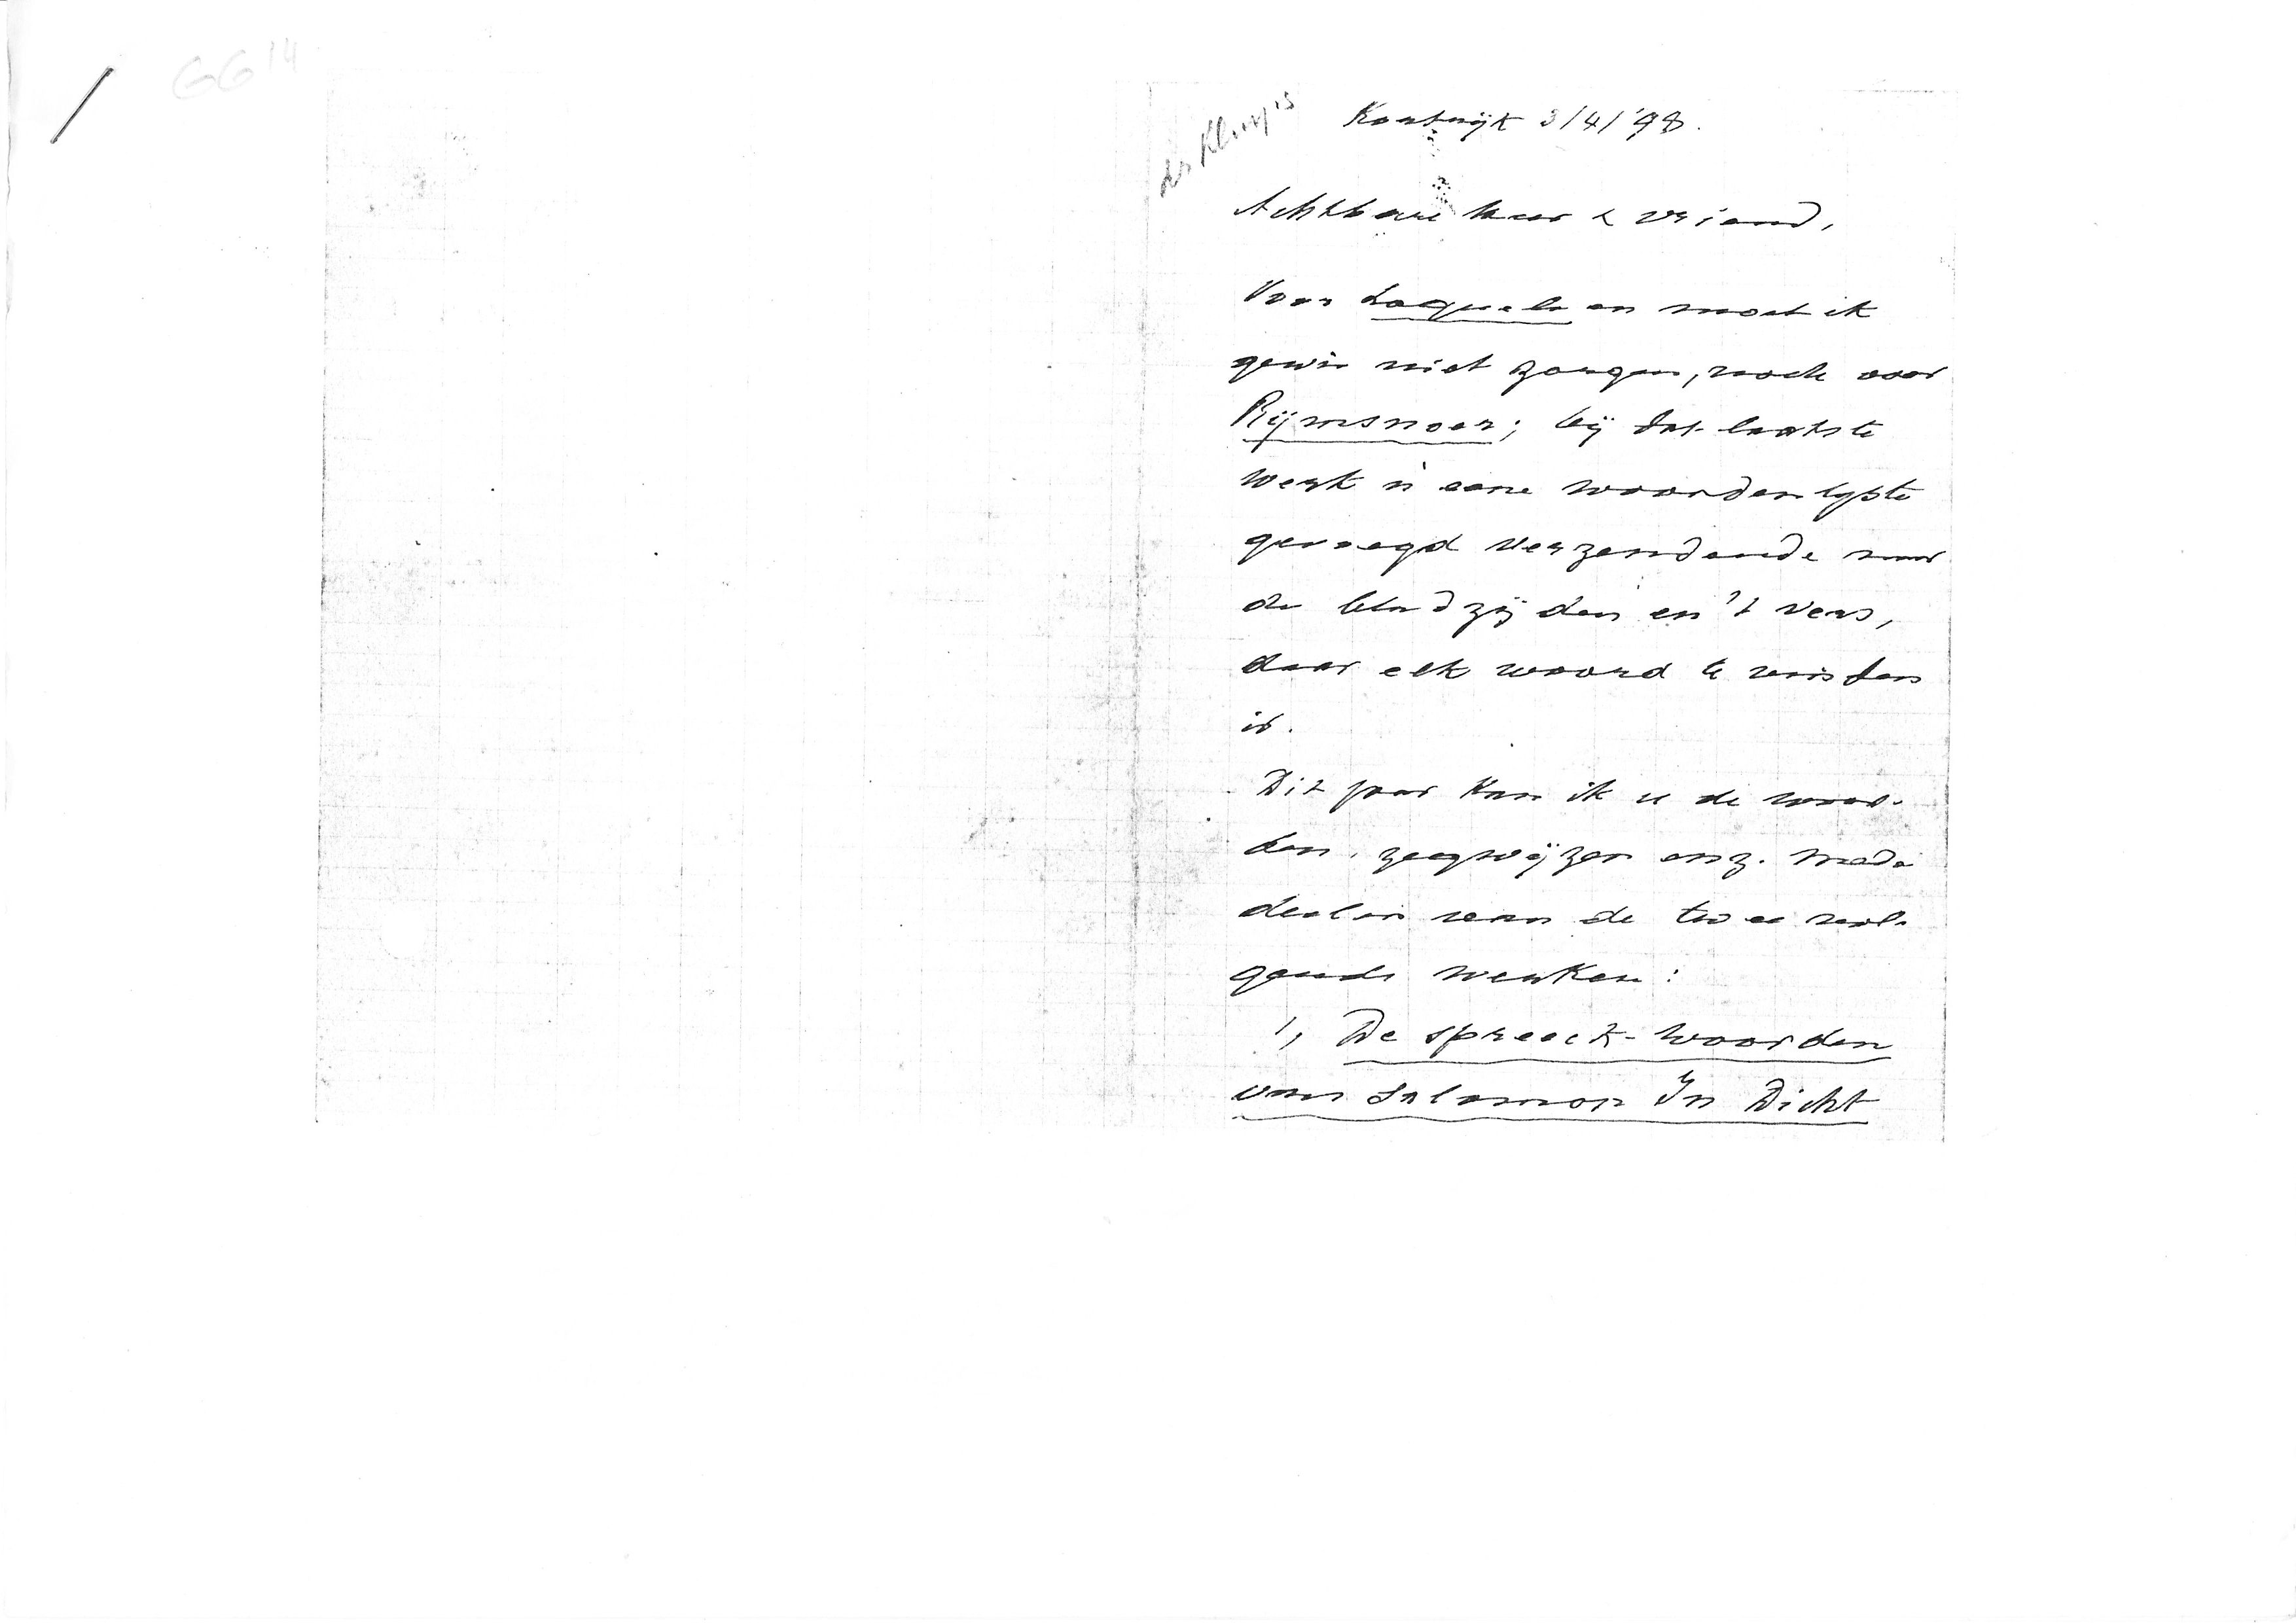 GG14
Kortrijk 3/4/'98.
Achtbare heer & vriend,
Voor Loquela en moet ik
gewis niet zorgen, noch voor
Rijmsnoer; bij dat laatste
werk is eene woordenlijste
gevoegd verzendende naar
de bladzijden en 't vers,
daar elk woord te vinden
is.
Dit jaar kan ik u de woor-
den, zegwijzen enz. mede
deelen van de twee vol-
gende werken:
1, De spreeck-woorden
van Salomon In Dicht